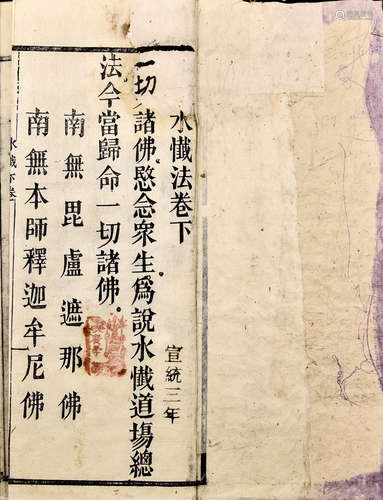 水懺法卷下
宣統三年
一切諸佛愍念衆生爲說水懺道場總
法今當歸命一切諸佛
南無毘盧遮那佛
南無本師釋迦牟尼佛
水懺下卷